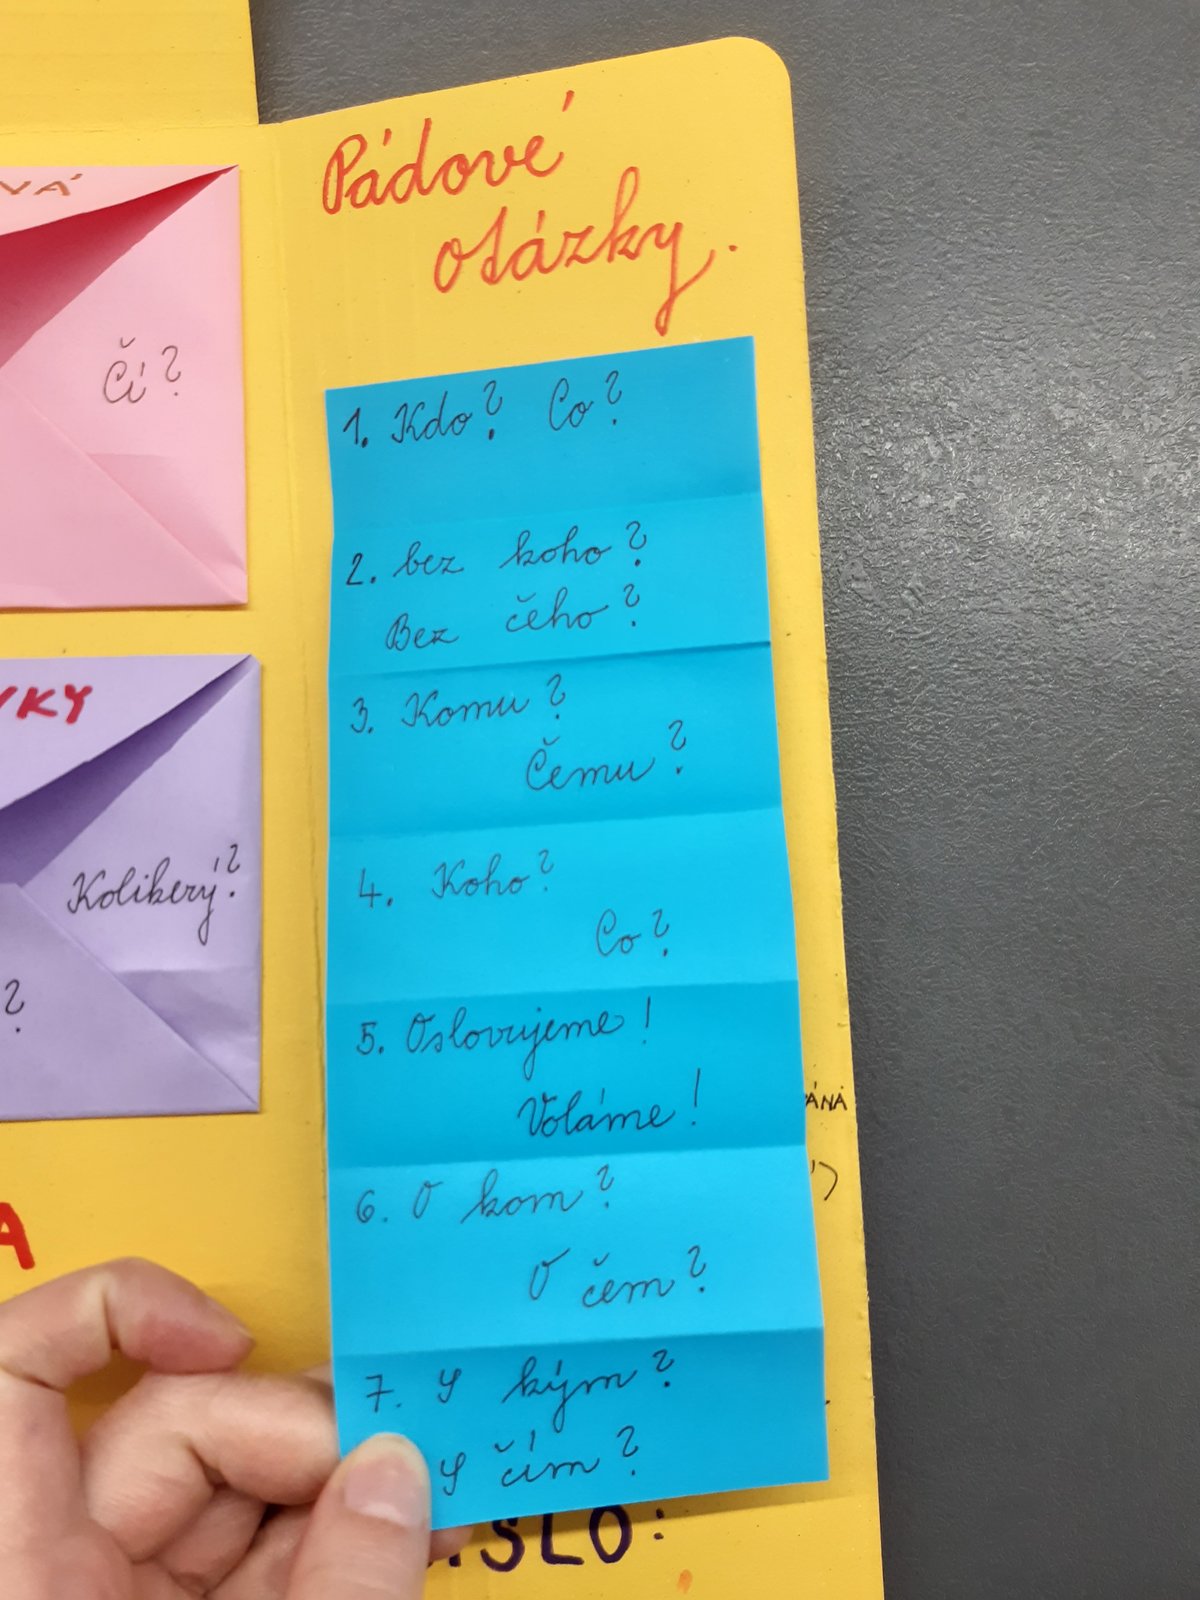 Pádové
otázky.
VÁ
Čí?
YKY
Kolikerý?
?
A
1. Kdo? Co?
2. bez koho?
Bez čeho?
3. Komu?
Čemu?
4. Koho?
Co?
5. Oslovujeme!
Voláme!
6. O kom?
O čem?
7. S kým?
S čím?
ÁNÁ
SLO: